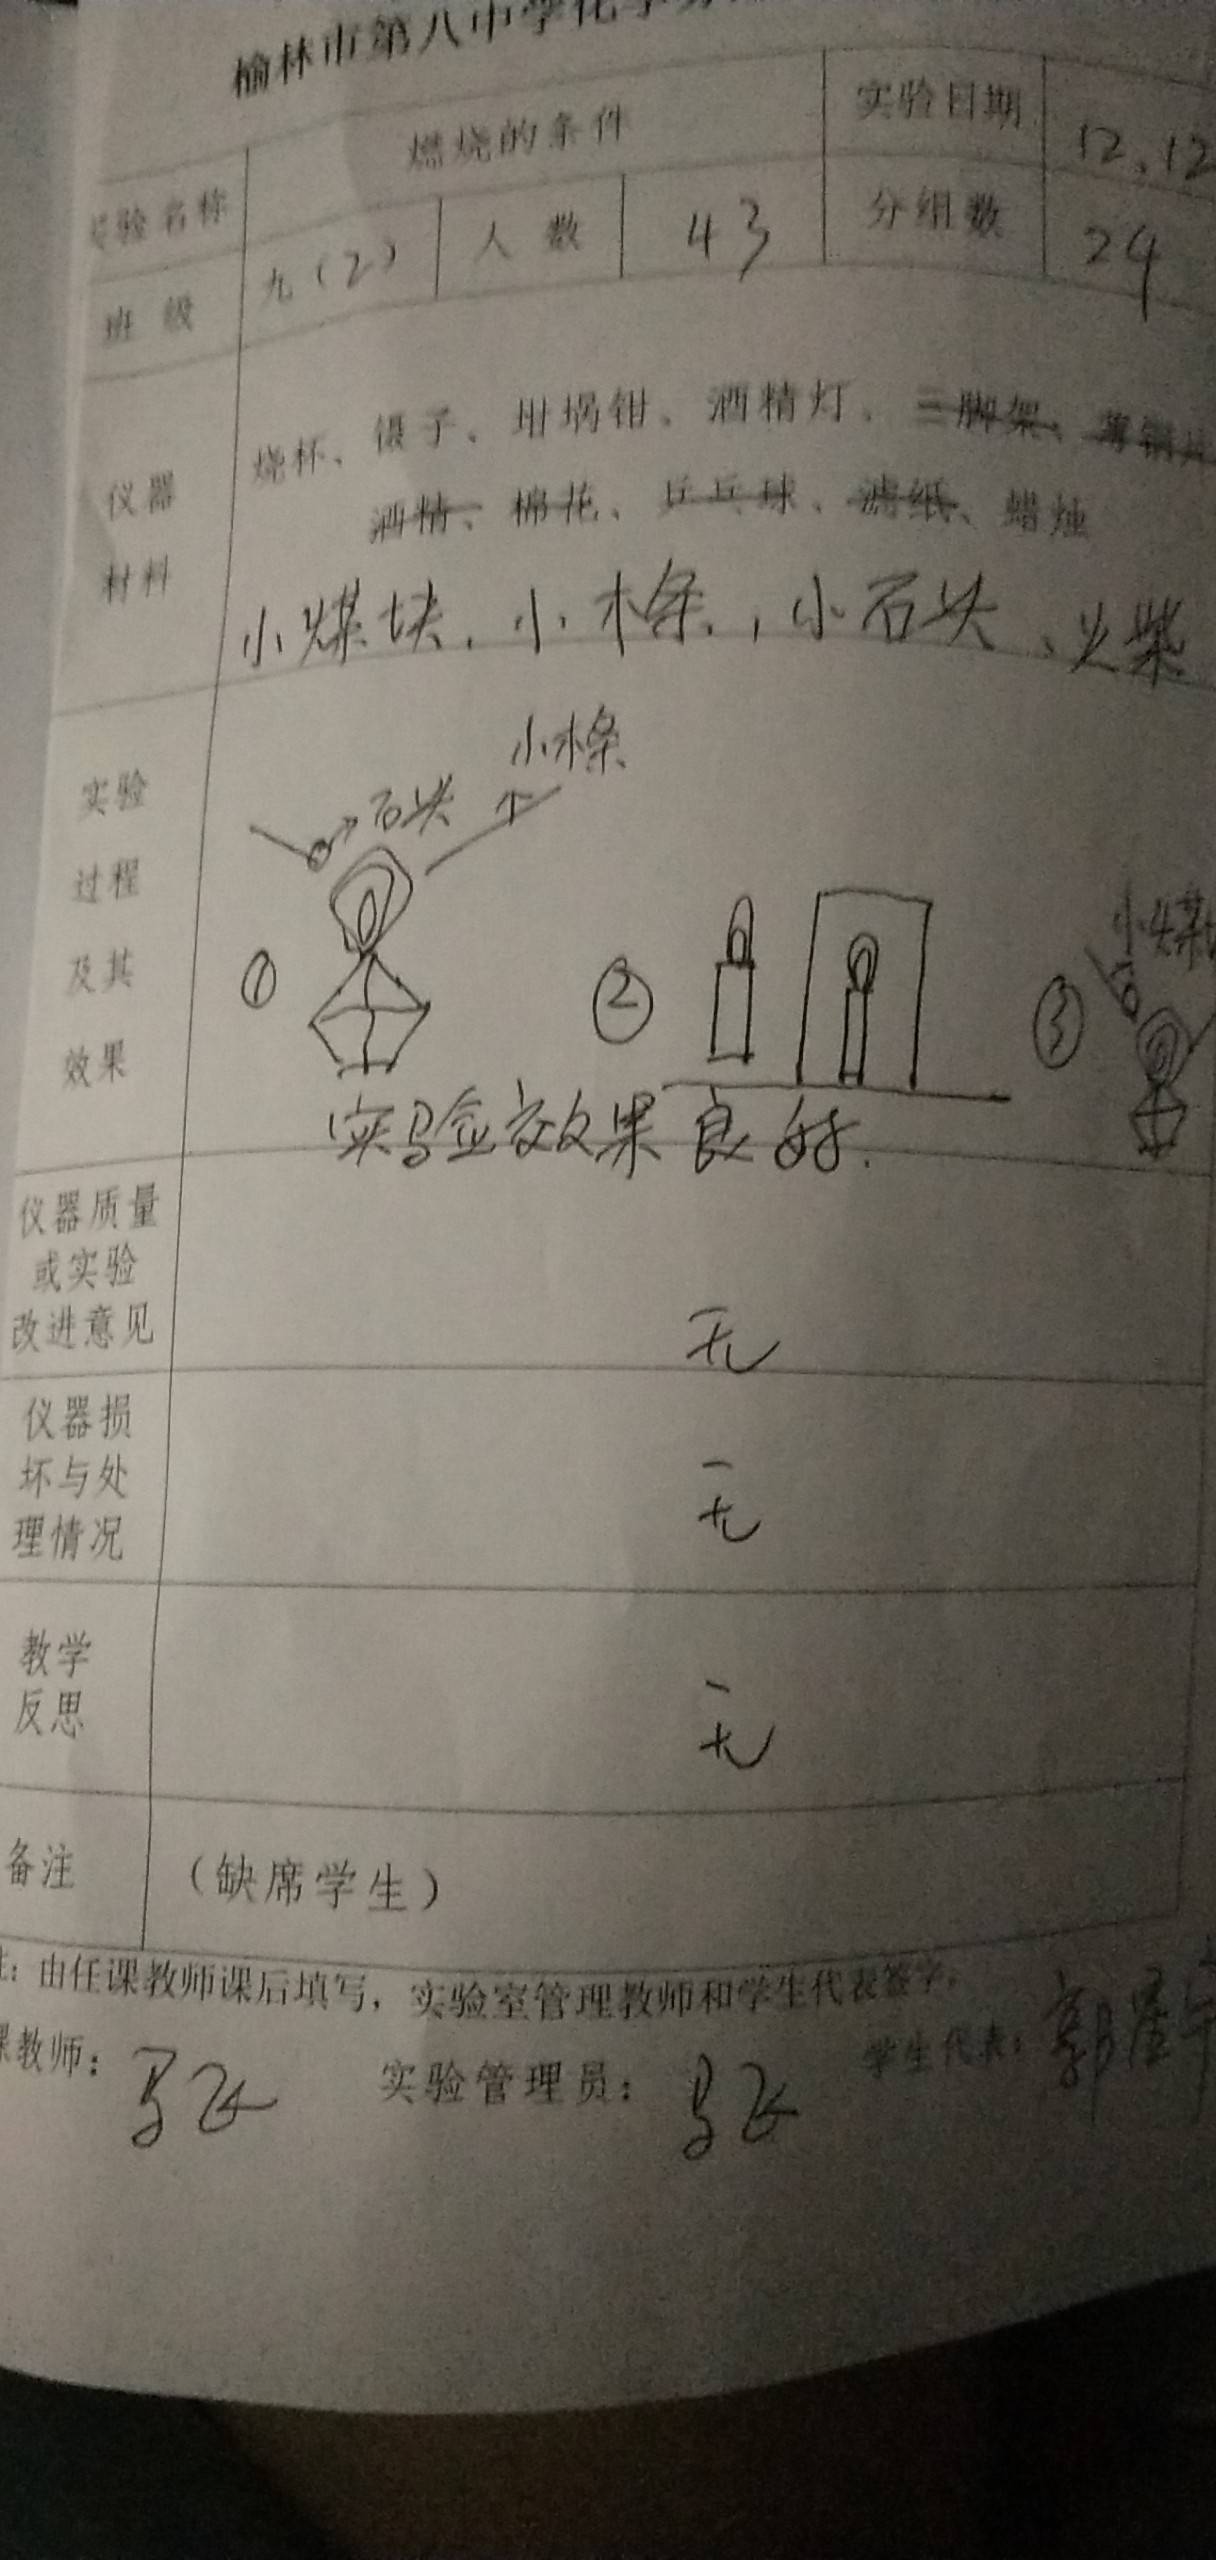 榆林市第八中学化学
实验名称 燃烧的条件 实验日期 12.12
班级 九(2) 人数 43 分组数 24
仪器材料
烧杯、镊子、坩埚钳、酒精灯、三脚架、薄铜片
酒精、棉花、乒乓球、滤纸、蜡烛
小煤块、小木条、小石头、火柴
实验
过程
及其
效果
小木条
石头
小煤
① ② ③
实验效果良好.
仪器质量
或实验
改进意见
无
仪器损
坏与处
理情况
无
教学
反思
无
备注 (缺席学生)
注:由任课教师课后填写,实验室管理教师和学生代表签字。
课教师: 实验管理员: 学生代表: